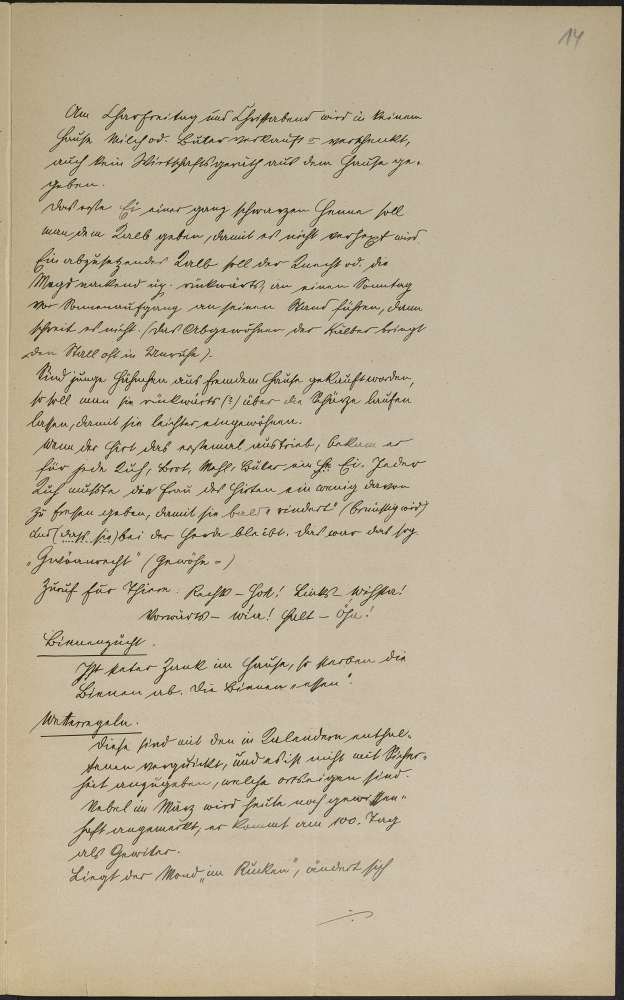 14
Am Charfreitag und Christabend wird in keinem
Hause Milch od. Buter verkauft o verschenkt,
auch kein Wirtschaftsgeräth aus dem Hause ge-
geben.
Das erste Ei einer ganz schwarzen Henne soll
man dem Kalb geben, damit es nicht verhext wird
Ein abzusetzendes Kalb soll der Knecht od. die
Magd nackend u. rückwärts, an einem Sonntag
vor Sonnenaufgang an seinen Stand führen, dann
schreit es nicht. (Das Abgewöhnen der Kälber bringt
den Stall oft in Unruhe).
Sind junge Hühnchen aus fremdem Hause gekauft worden,
so soll man sie rückwärts (?) über die Schürze laufen
lassen, damit sie leichter eingewöhnen.
Wenn der Hirt das erstemal austrieb, bekam er
für jede Kuh, Brot, Mehl, Buter ein Ei. Jeder
Kuh mußte die Frau des Hirten ein wenig davon
zu fressen geben, damit sie bald "rindert" (brünstig wird)
und (dass sie) bei der Herde bleibt. Das war das sog
(Gewöhn-)
Zuruf für Thiere: Rechts – Hott! Links wihsta!
Vorwärts – wia! Halt – Öha!
Bienenzucht.
Ist steter Zank im Hause, so sterben die
Bienen ab. Die Bienen "essen".
Wetterregeln.
Diese sind mit den in Kalendern enthal-
tenen verquickt, und es ist nicht mit Sicher-
heit anzugeben, welche ortseigen sind.
Nebel im März wird heute noch gewissen-
haft angemerkt, er kommt am 100. Tag
als Gewitter.
Liegt der Mond "im Rücken", ändert sich